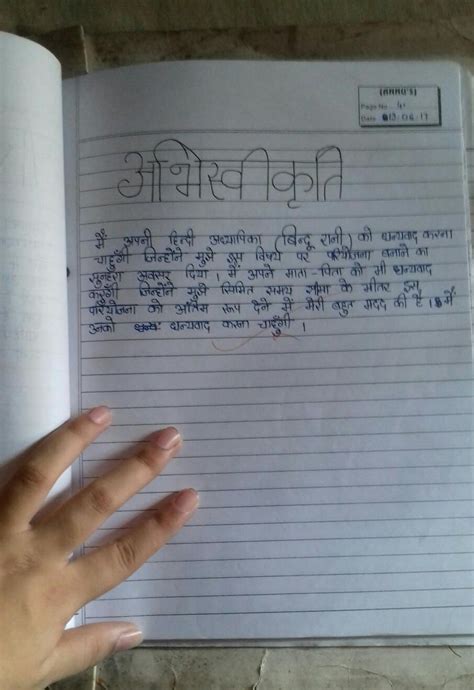 (BRRO'S)
Page No. 4
Date 13.06.17
अभिस्वीकृति
मैं अपनी हिन्दी अध्यापिका (बिन्दू रानी) को धन्यवाद करना
चाहूँगी जिन्होंने मुझे इस विषय पर परियोजना बनाने का
सुनहरा अवसर दिया। मैं अपने माता-पिता को भी धन्यवाद
करूँगी जिन्होंने मुझे सिमित समय सीमा के भीतर इस
परियोजना को अंतिम रूप देने में मेरी बहुत मदद की है। मैं
उनको धन्यवाद करना चाहूँगी।